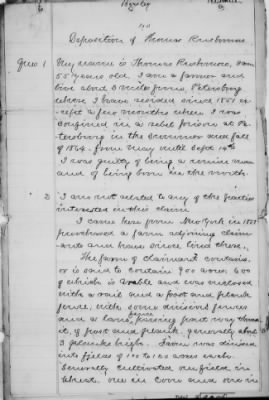 Deposition of Thomas Rushmore
Ques 1 My name is Thomas Rushmore, I am
55 years old. I am a farmer and
live about 3 miles from Petersburg
where I have resided since 1851 ex-
-cept a few months when I was
confined in a rebel prison at Pe-
tersburg in the summer and fall
of 1864, from May until Sept 14th
I was guilty of being a union man
and of being born in the north.
2 I am not related to any of the parties
interested in this claim
I came here from New York in 1851
purchased a farm adjoining claim-
ants and have since lived there.
The farm of claimant contains
or is said to contain 900 acres, 600
of which is arable and was enclosed
with a rail and a post and plank
fence, with cross divisions fences
and a lane passing part way through
it, of post and plank, generally about
3 planks high. Farm was divided
into fields of 100 to 150 acres each.
Generally cultivated one field in
wheat, one in corn and one in